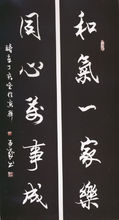 和氣一家樂
同心萬事成